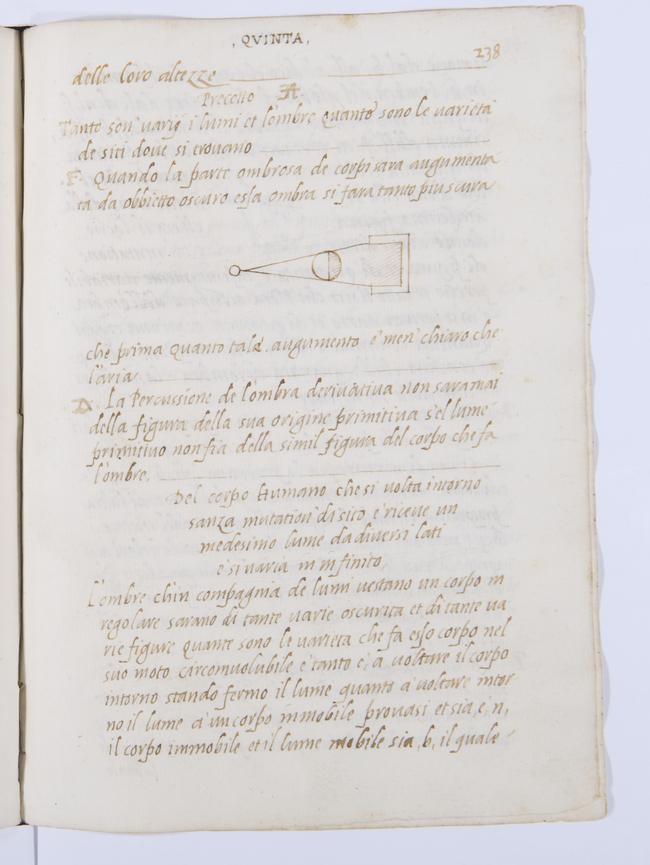 , QVINTA,
238
delle loro altezze
Precetto A
Tanto son' varij i lumi et l'ombre quanto sono le varieta
de siti dove si trovano
F. Quando la parte ombrosa de corpi sara augumenta
ta da obbietto oscuro essa ombra si fara tanto piu scura
che prima quanto tale augumento e' men' chiaro che
l'aria
D. La Percussione de l'ombra derivativa non sara mai
della figura della sua origine primitiva s'el lume
primitivo non fia della simil figura del corpo che fa
l'ombre.
Del corpo Humano che si volta intorno
sanza mutation' di sito e' riceve un
medesimo lume da diversi lati
e' si varia in infinito
L'ombre ch'in compagnia de lumi vestano un corpo in
regolare sarano di tante varie oscurita et di tante va
rie figure quante sono le varieta che fa esso corpo nel
suo moto circomvolubile e' tanto e', a' voltare il corpo
intorno stando fermo il lume quanto a' voltare intor
no il lume a' un corpo immobile provasi et sia, e, n,
il corpo immobile et il lume mobile sia, b, il quale